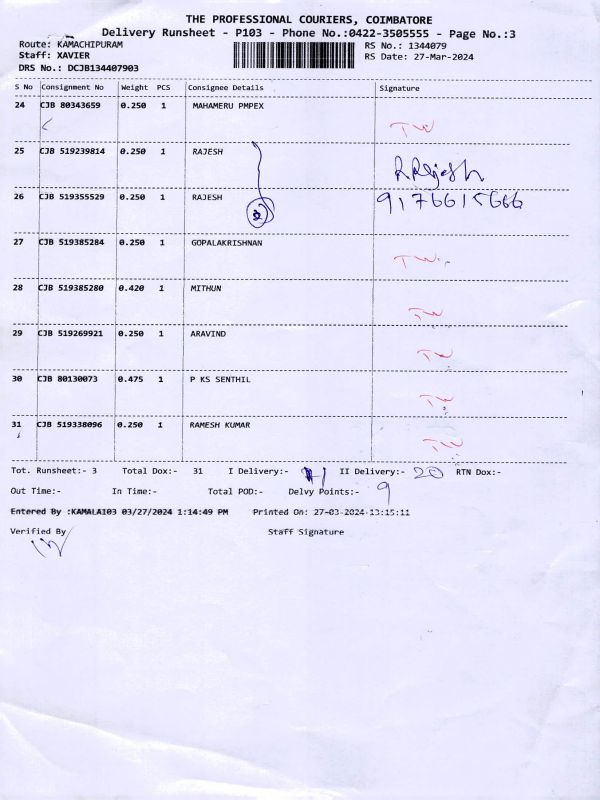 THE PROFESSIONAL COURIERS, COIMBATORE
Delivery Runsheet - P103 - Phone No.:0422-3505555 - Page No.:3
Route: KAMACHIPURAM RS No.: 1344079
Staff: XAVIER RS Date: 27-Mar-2024
DRS No.: DCJB134407903
S No Consignment No Weight PCS Consignee Details Signature
24 CJB 80343659 0.250 1 MAHAMERU PMPEX
TW
25 CJB 519239814 0.250 1 RAJESH
R Rajesh
26 CJB 519355529 0.250 1 RAJESH 9176615666
2
27 CJB 519385284 0.250 1 GOPALAKRISHNAN
TW
28 CJB 519385280 0.420 1 MITHUN
TW
29 CJB 519269921 0.250 1 ARAVIND
TW
30 CJB 80130073 0.475 1 P KS SENTHIL
TW
31 CJB 519338096 0.250 1 RAMESH KUMAR
TW
Tot. Runsheet:- 3 Total Dox:- 31 I Delivery:- II Delivery:- 20 RTN Dox:-
Out Time:- In Time:- Total POD:- Delvy Points:- 9
Entered By :KAMALA103 03/27/2024 1:14:49 PM Printed On: 27-03-2024-13:15:11
Verified By Staff Signature